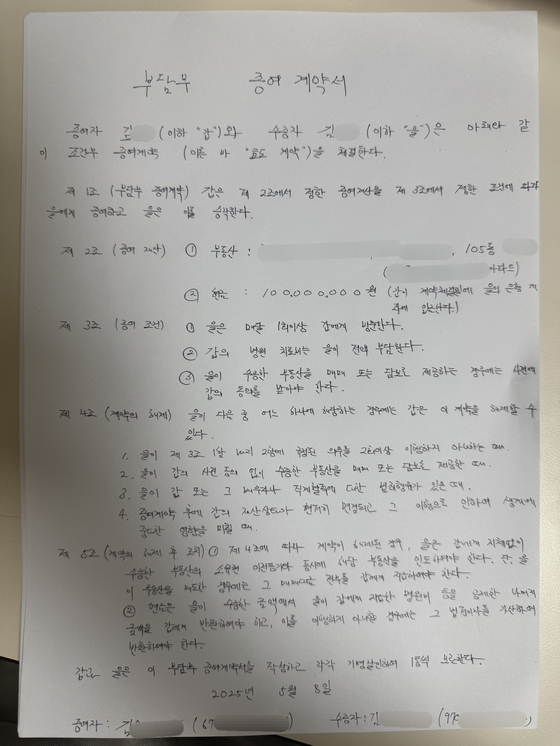 부담부 증여 계약서
증여자 김 (이하 "갑")와 수증자 김 (이하 "을")은 아래와 같
이 조건부 증여계약 (이른 바 "효도 계약")을 체결한다.
제 1조 (부담부 증여계약) 갑은 제 2조에서 정한 증여재산을 제 3조에서 정한 조건에 따라
을에게 증여하고 을은 이를 승낙한다.
제 2조 (증여 재산) ① 부동산 : , 105동
( 아파트)
② 현금 : 100,000,000원 (갑이 계약체결일에 을의 은행 계
좌에 입금한다.)
제 3조 (증여 조건) ① 을은 매달 1회이상 갑에게 방문한다.
② 갑의 병원 치료비는 을이 전액 부담한다.
③ 을이 수증한 부동산을 매매 또는 담보로 제공하는 경우에는 사전에
갑의 동의를 받아야 한다.
제 4조 (계약의 해제) 을이 다음 중 어느 하나에 해당하는 경우에는 갑은 이 계약을 해제할 수
있다.
1. 을이 제 3조 1항 내지 2항에 규정된 의무를 2회이상 이행하지 아니하는 때.
2. 을이 갑의 사전 동의 없이 수증한 부동산을 매매 또는 담보로 제공한 때.
3. 을이 갑 또는 그 배우자나 직계혈족에 대한 범죄행위가 있은 때.
4. 증여계약 후에 갑의 재산상태가 현저히 변경되고 그 이행으로 인하여 생계에
중대한 영향을 미칠 때.
제 5조 (계약의 해제 후 조치) ① 제 4조에 따라 계약이 해제된 경우, 을은 갑에게 지체없이
수증한 부동산의 소유권 이전등기와 동시에 해당 부동산을 인도하여야 한다. 단, 을
이 부동산을 매도한 경우에는 그 매매대금 전부를 갑에게 지급하여야한다.
② 현금은 을이 수증한 금액에서 을이 갑에게 지급한 병원비 등을 공제한 나머지
금액을 갑에게 반환하여야 하고, 이를 이행하지 아니한 경우에는 그 법정이자를 가산하여
반환하여야 한다.
갑과 을은 이 부담부 증여계약서를 작성하고 각각 기명날인하여 1통씩 보관한다.
2025년 5월 8일
증여자 : 김 (67 ) 수증자 : 김 (97 )